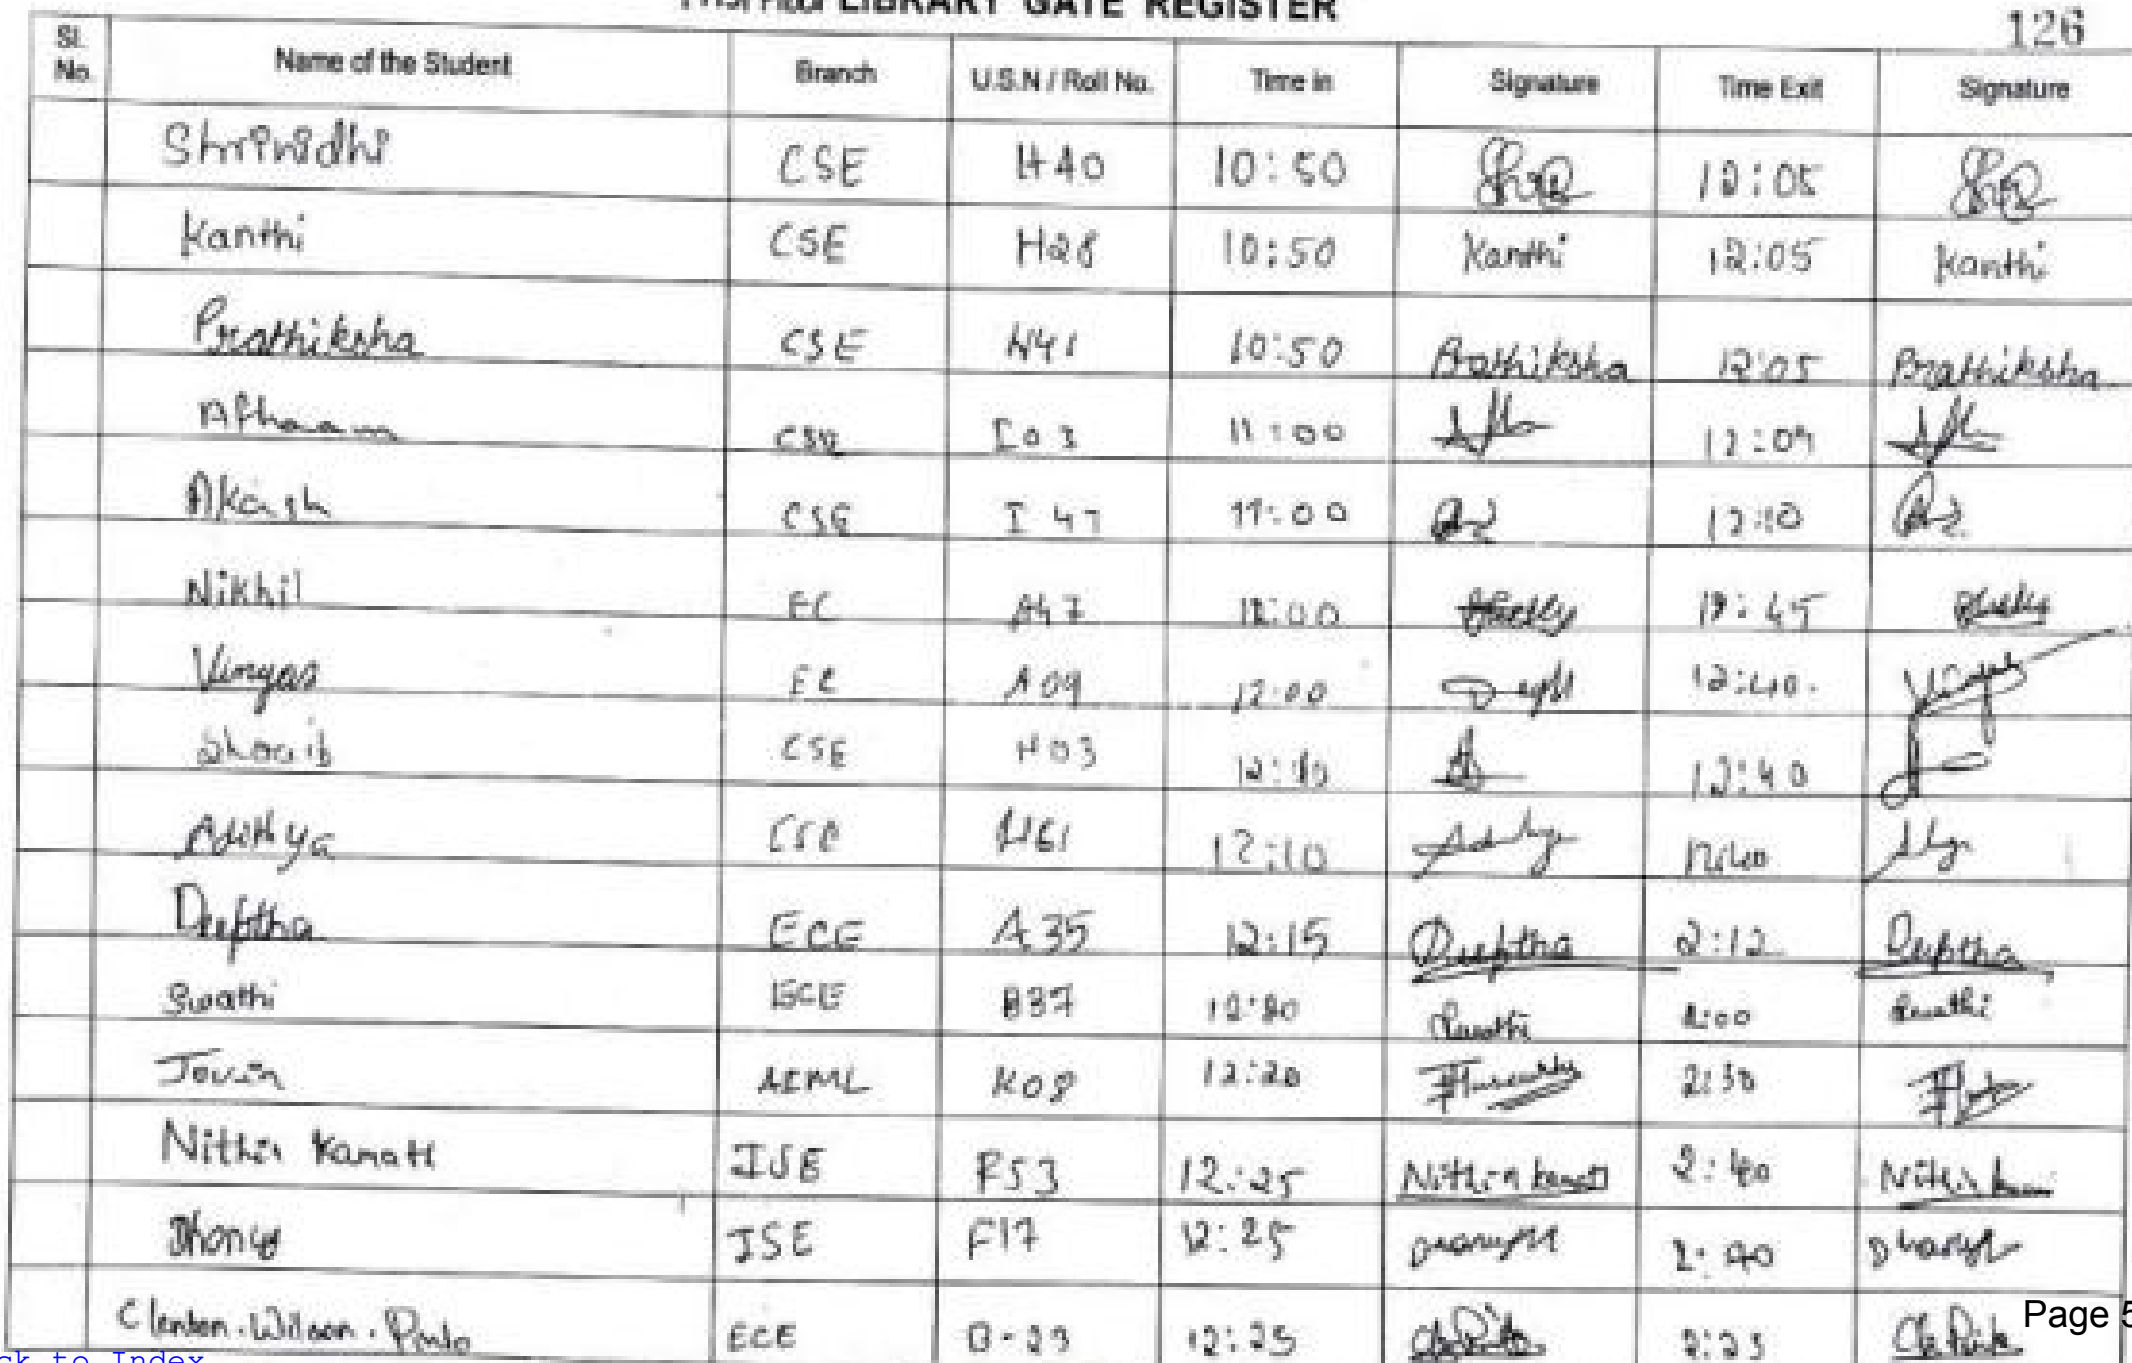 First Floor LIBRARY GATE REGISTER
126
Sl. No. Name of the Student Branch U.S.N / Roll No. Time in Signature Time Exit Signature
Shrinidhi CSE H40 10:50 12:05
Kanthi CSE H28 10:50 Kanthi 12:05 Kanthi
Prathiksha CSE H41 10:50 Prathiksha 12:05 Prathiksha
CSE I03 11:00 12:09
Akash CSE I 47 11:00 12:10
Nikhil EC A47 12:00 12:45
Vinyas EC A09 12:00 12:40
Shoaib CSE H03 12:10 12:40
Adithya CSE H61 12:10 12:40
Deeptha ECE A35 12:15 Deeptha 2:12 Deeptha
Swathi ECE B37 12:20 Swathi 2:00 Swathi
Jovin AIML K08 12:20 2:30
Nithin Kamath ISE F53 12:25 Nithin Kamath 2:40 Nithin
ISE F17 12:25 2:40
Clenton. Wilson. Pinto ECE B-23 12:25 2:23
Page 5
ck to Index